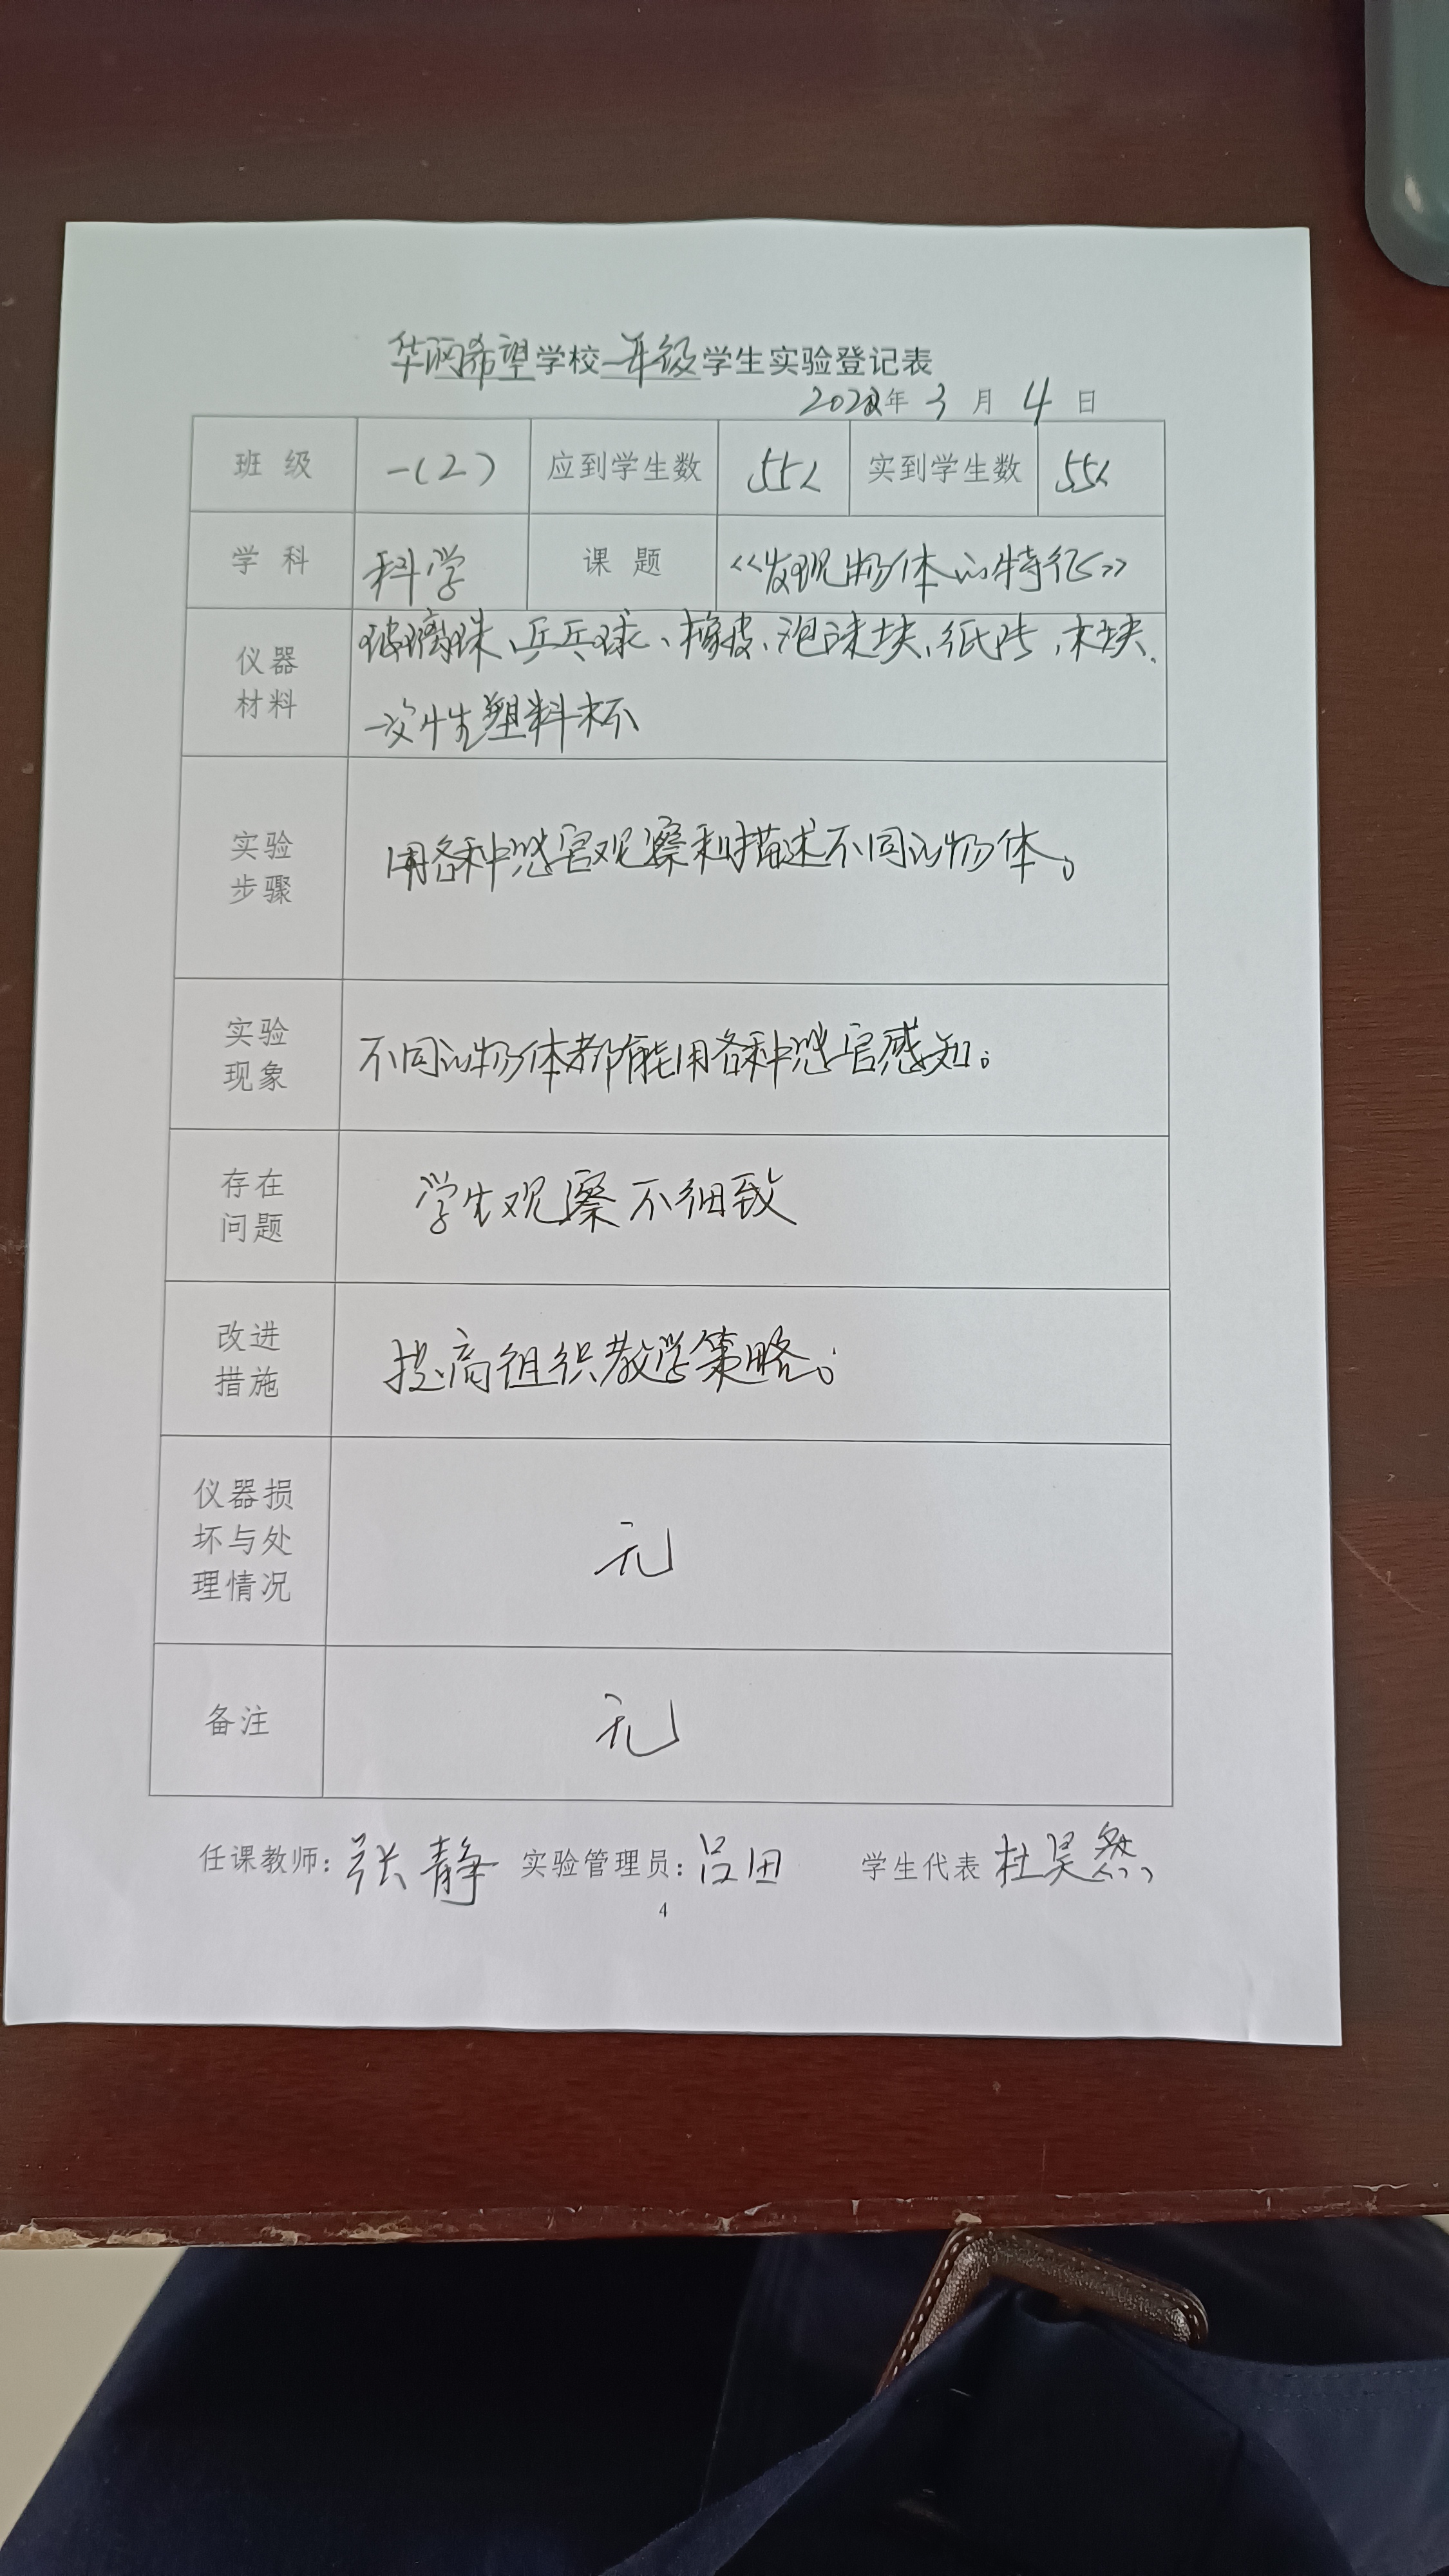 华润希望学校一年级学生实验登记表
2022年 3 月 4 日
班 级 一(2) 应到学生数 55人 实到学生数 55人
学 科 科学 课 题 《发现物体的特征》
仪器
材料
玻璃珠、乒乓球、橡皮、泡沫块、纸片,木块、
一次性塑料杯
实验
步骤
用各种感官观察和描述不同的物体。
实验
现象
不同的物体都能用各种感官感知。
存在
问题
学生观察不细致
改进
措施
提高组织教学策略。
仪器损
坏与处
理情况
无
备注
无
任课教师:张静 实验管理员:吕田 学生代表 杜昊然
4